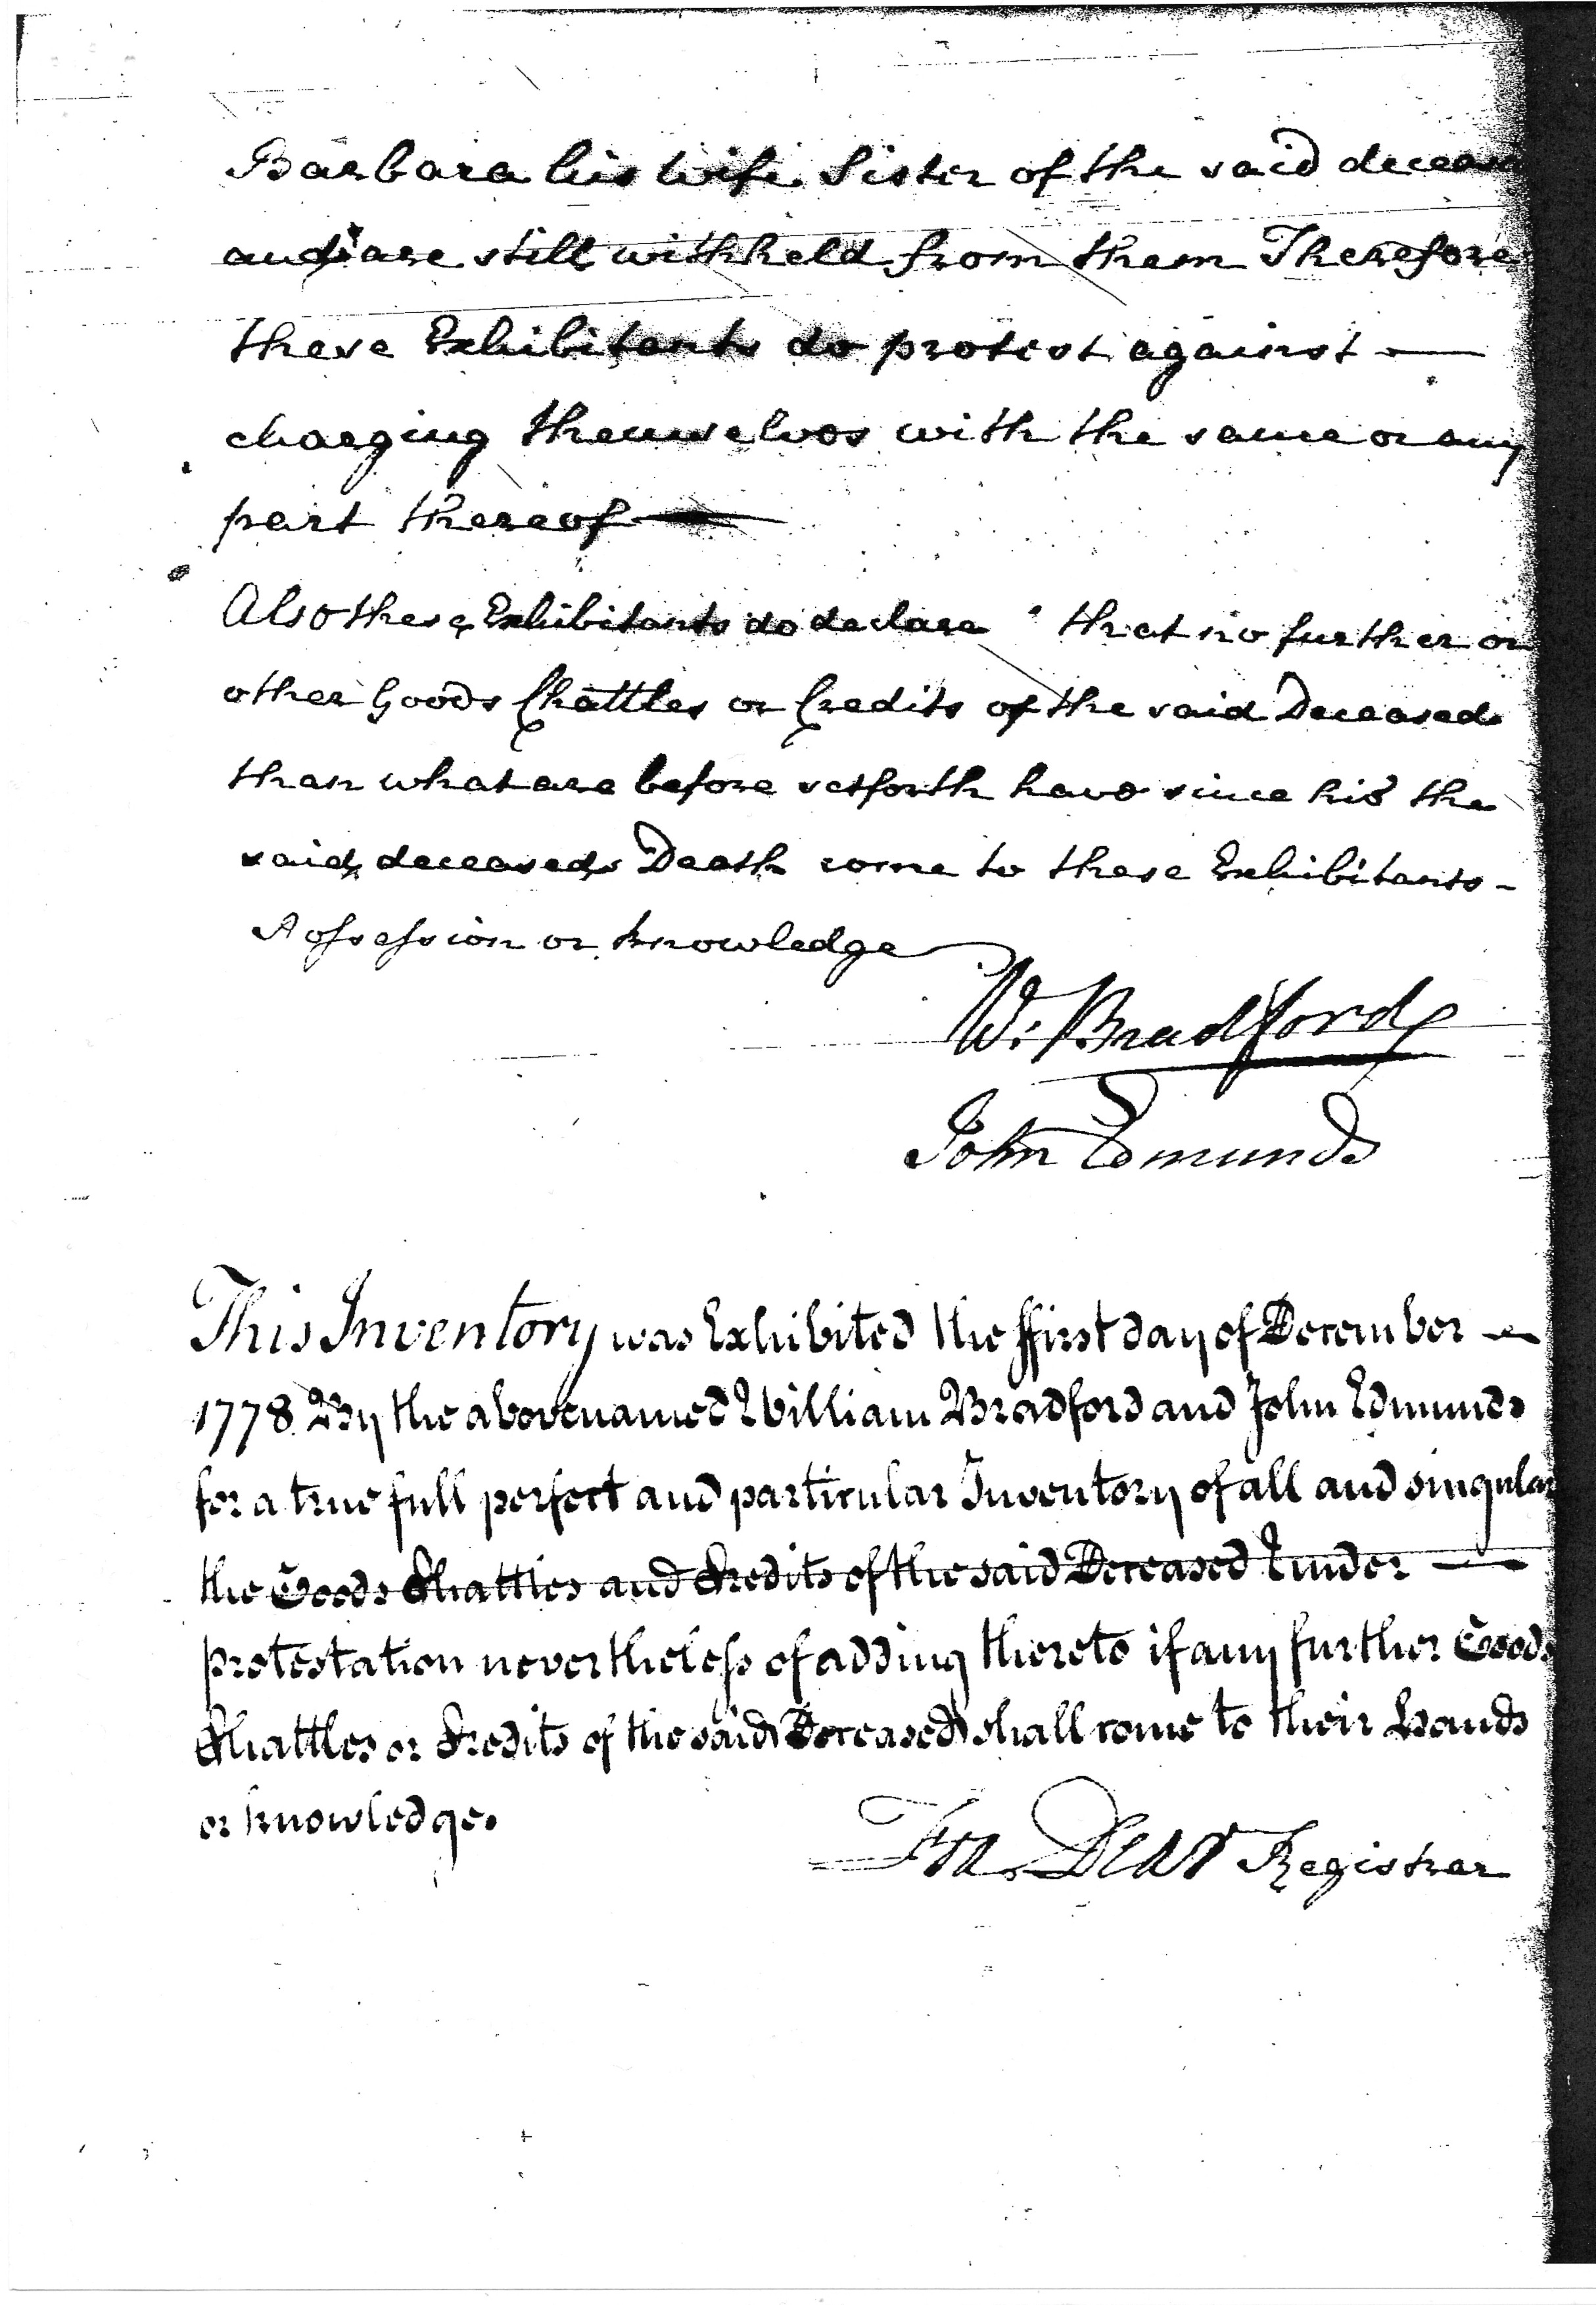 Barbara his wife Sister of the said deceas
and are still withheld from them Therefore
these Exhibitants do protest against —
charging themselves with the same or any
part thereof —
Also these Exhibitants do declare that no further or
other Goods Chattles or Credits of the said Deceased
than what are before setforth have since his the
said deceaseds Death come to these Exhibitants -
Possession or knowledge
W: Bradford
John Edmunds
This Inventory was Exhibited the ffirst day of December —
1778 By the abovenamed William Bradford and John Edmunds
for a true full perfect and particular Inventory of all and singular
the Goods Chattles and Credits of the said Deceased Under —
protestation nevertheless of adding thereto if any further Goods
Chattles or Credits of the said Deceased shall come to their Hands
or knowledge.
Fra. Registrar